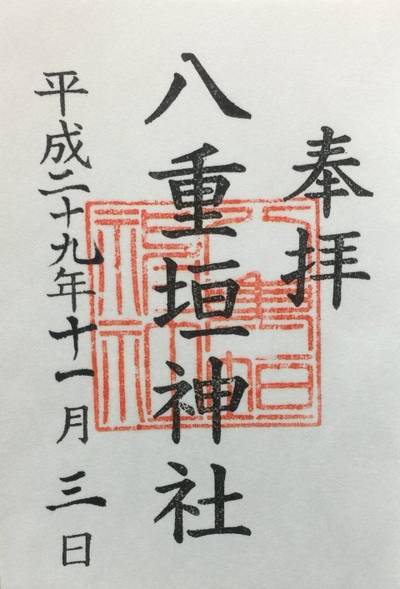 奉拝
八重垣神社
平成二十九年十一月三日
八重垣
神社